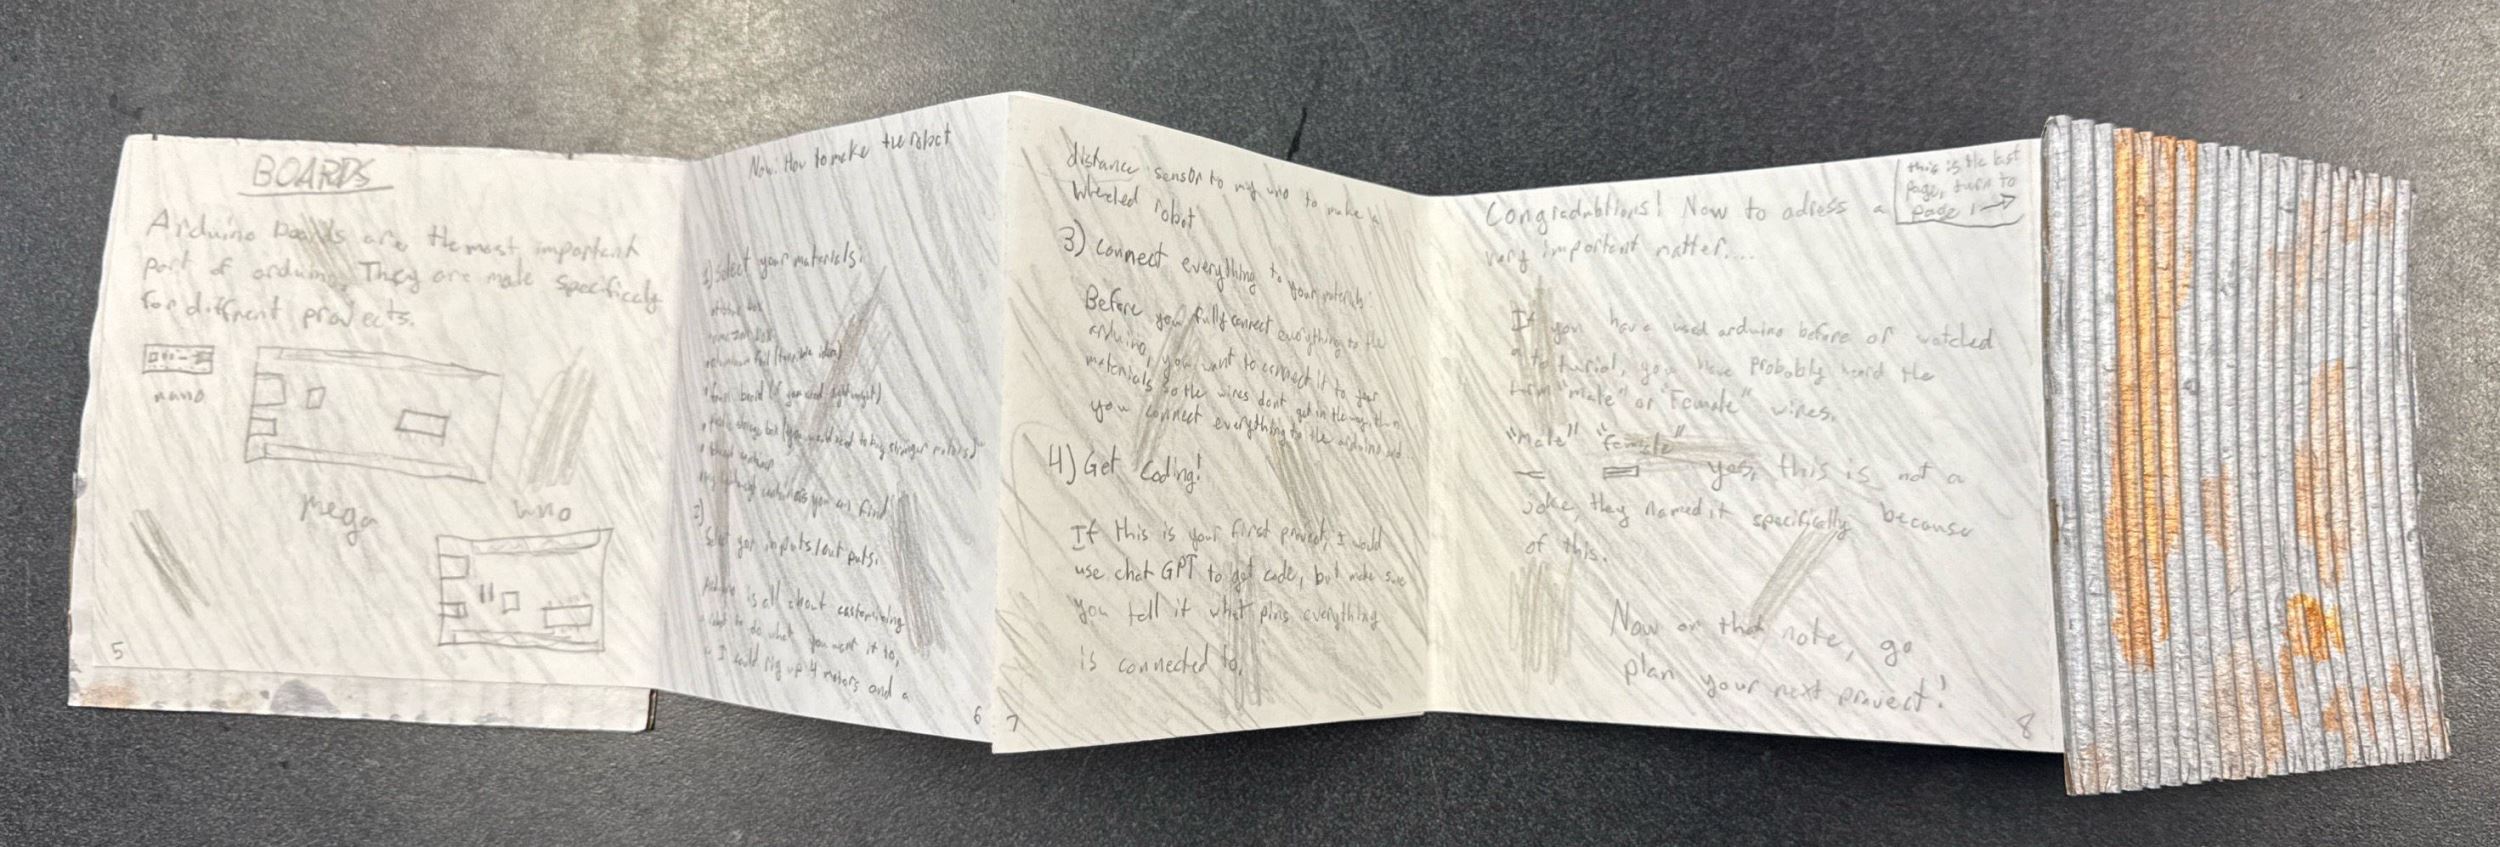 BOARDS
Arduino boards are the most important
part of arduino. They are made specificly
for diffrent provects.
nano
mega
uno
5
Now: How to make the robot
1) Select your materials:
box
foil (terrible idea)
foam board (if you need lightweight)
box (you would need to buy stronger motors)
you can find
2)
Select your inputs/out puts.
is all about customizing
robot to do what you want it to,
I could rig up 4 motors and a
6
distance sensor to my uno to make a
wheeled robot
3) connect everything to your materials:
Before you fully connect everything to the
arduino, you want to connect it to your
materials so the wires dont get in the way, then
you connect everything to the arduino
4) Get Coding!
If this is your first provect, I would
use chat GPT to get code, but make sure
you tell it what pins everything
is connected to.
7
this is the last
page, turn to
page 1 →
Congradubtions! Now to adress a
very important matter....
If you have used arduino before or watched
a toturial, you have probably heard the
term "male" or "Female" wires.
"Male" "female"
yes, this is not a
joke, they named it specifically because
of this.
Now on that note, go
plan your next provect!
8